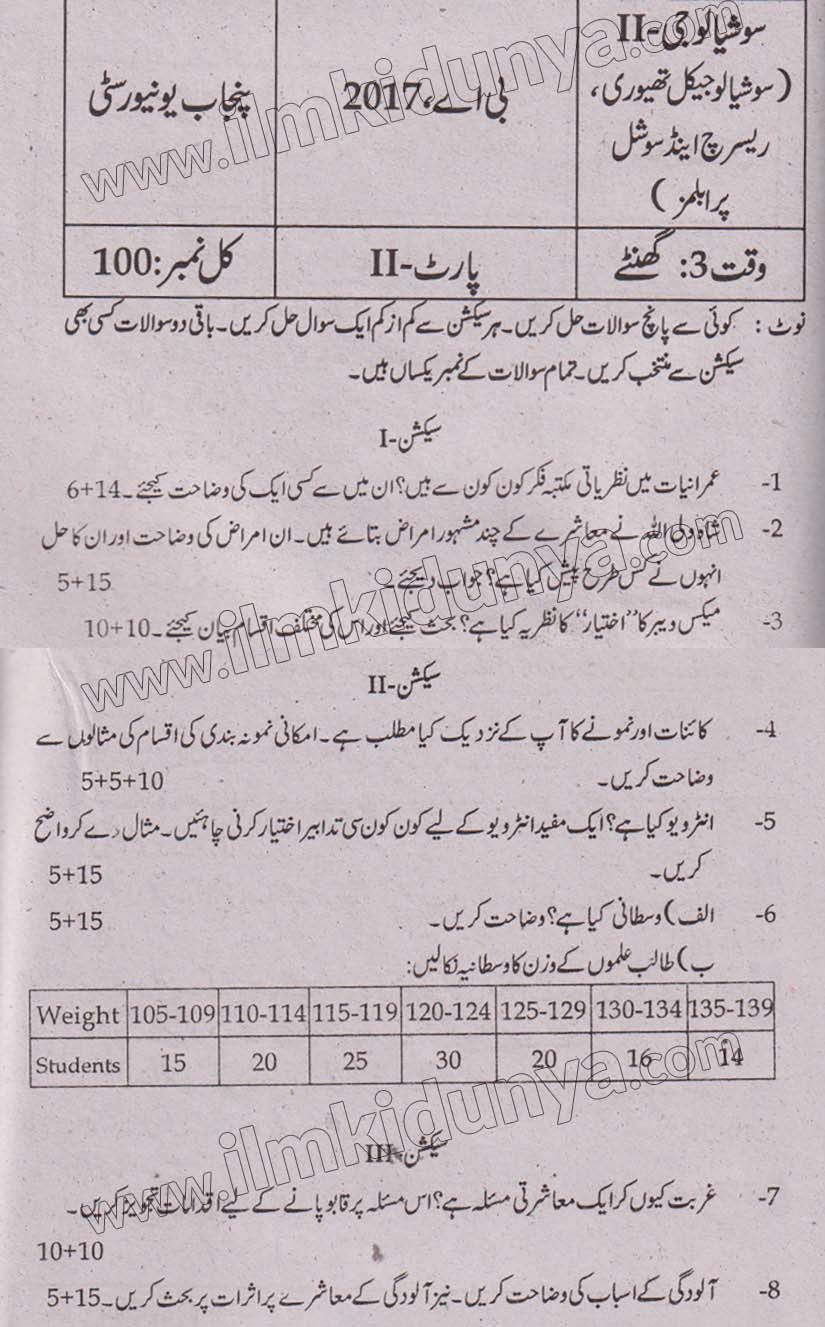 سوشیالوجی-II
(سوشیالوجیکل تھیوری،
ریسرچ اینڈ سوشل
پرابلمز)
بی اے، 2017
پنجاب یونیورسٹی
وقت 3: گھنٹے
پارٹ-II
کل نمبر: 100
نوٹ: کوئی سے پانچ سوالات حل کریں۔ ہر سیکشن سے کم از کم ایک سوال حل کریں۔ باقی دو سوالات کسی بھی
سیکشن سے منتخب کریں۔ تمام سوالات کے نمبر یکساں ہیں۔
سیکشن-I
1- عمرانیات میں نظریاتی مکتبہ فکر کون کون سے ہیں؟ ان میں سے کسی ایک کی وضاحت کیجئے۔ 6+14
2- شاہ ولی اللہ نے معاشرے کے چند مشہور امراض بتائے ہیں۔ ان امراض کی وضاحت اور ان کا حل
انہوں نے کس طرح پیش کیا ہے؟ جواب دیجئے۔ 5+15
3- میکس ویبر کا "اختیار" کا نظریہ کیا ہے؟ بحث کیجئے اور اس کی مختلف اقسام بیان کیجئے۔ 10+10
سیکشن-II
4- کائنات اور نمونے کا آپ کے نزدیک کیا مطلب ہے۔ امکانی نمونہ بندی کی اقسام کی مثالوں سے
وضاحت کریں۔ 5+5+10
5- انٹرویو کیا ہے؟ ایک مفید انٹرویو کے لیے کون کون سی تدابیر اختیار کرنی چاہئیں۔ مثال دے کر واضح
کریں۔ 5+15
6- الف) وسطانی کیا ہے؟ وضاحت کریں۔ 5+15
ب) طالب علموں کے وزن کا وسطانیہ نکالیں:
Weight 105-109 110-114 115-119 120-124 125-129 130-134 135-139
Students 15 20 25 30 20 16 14
سیکشن-III
7- غربت کیوں کر ایک معاشرتی مسئلہ ہے؟ اس مسئلہ پر قابو پانے کے لیے اقدامات تجویز کریں۔
10+10
8- آلودگی کے اسباب کی وضاحت کریں۔ نیز آلودگی کے معاشرے پر اثرات پر بحث کریں۔ 5+15
www.ilmkidunya.com
www.ilmkidunya.com
www.ilmkidunya.com
www.ilmkidunya.com